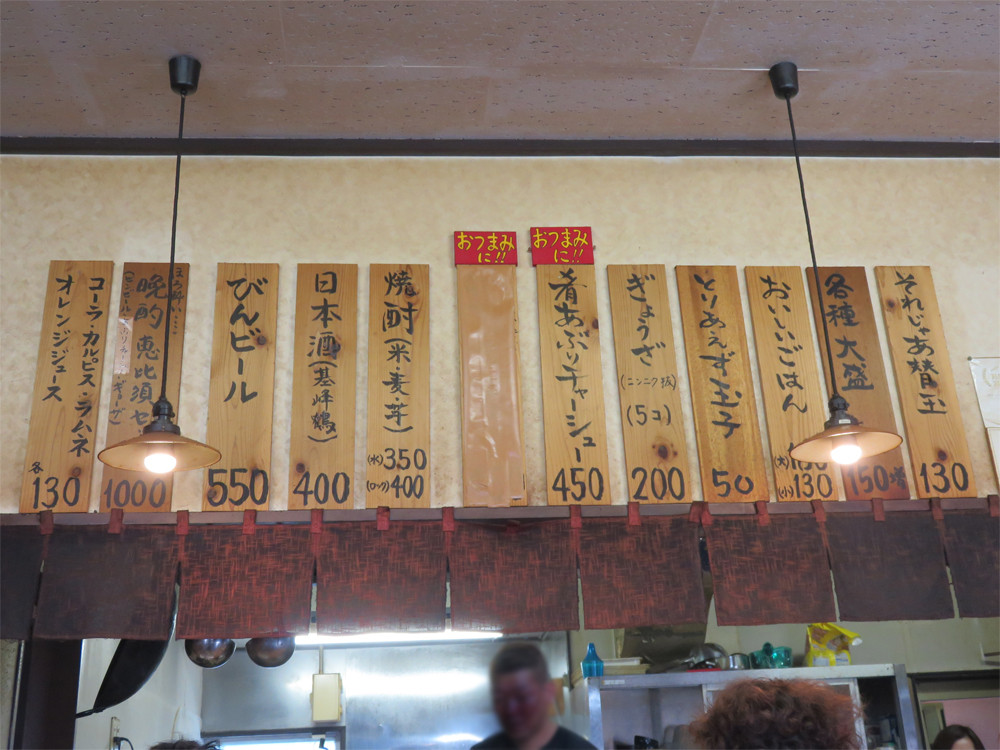 それじゃあ替玉
130
各種大盛
150増
おいしいごはん
(大)
(小)130
とりあえず玉子
50
ぎょうざ
(ニンニク抜)
(5コ)
200
おつまみ
に!!
肴あぶりチャーシュー
450
おつまみ
に!!
焼酎(米・麦・芋)
(水)350
(ロック)400
日本酒(基峰鶴)
400
びんビール
550
晩酌 恵比須セ
1000
コーラ・カルピス・ラムネ
オレンジジュース
各
130